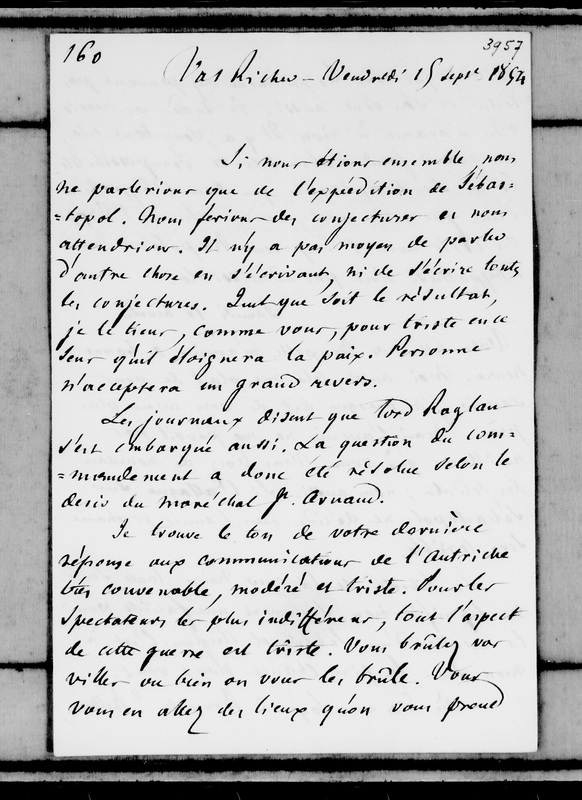 160
3957
Val Richer – Vendredi 15 Septe 1854
Si nous étions ensemble, nous
ne parlerions que de l'expédition de Sébas=
=topol. Nous ferions des conjectures et nous
attendrions. Il n'y a pas moyen de parler
d'autre chose en s'écrivant, ni de s'écrire toutes
les conjectures. Quel que soit le résultat,
je le tiens, comme vous, pour triste en ce
sens qu'il éloignera la paix. Personne
n'acceptera un grand revers.
Les journaux disent que lord Raglan
s'est embarqué aussi. La question du com=
=mandement a donc été résolue selon le
désir du maréchal St Arnaud.
Je trouve le ton de votre dernière
réponse aux communications de l'Autriche
très convenable, modéré et triste. Pour les
spectateurs les plus indifférens, tout l'aspect
de cette guerre est triste. Vous brûlez vos
villes ou bien on vous les brûle. Vous
vous en allez des lieux qu'on vous prend